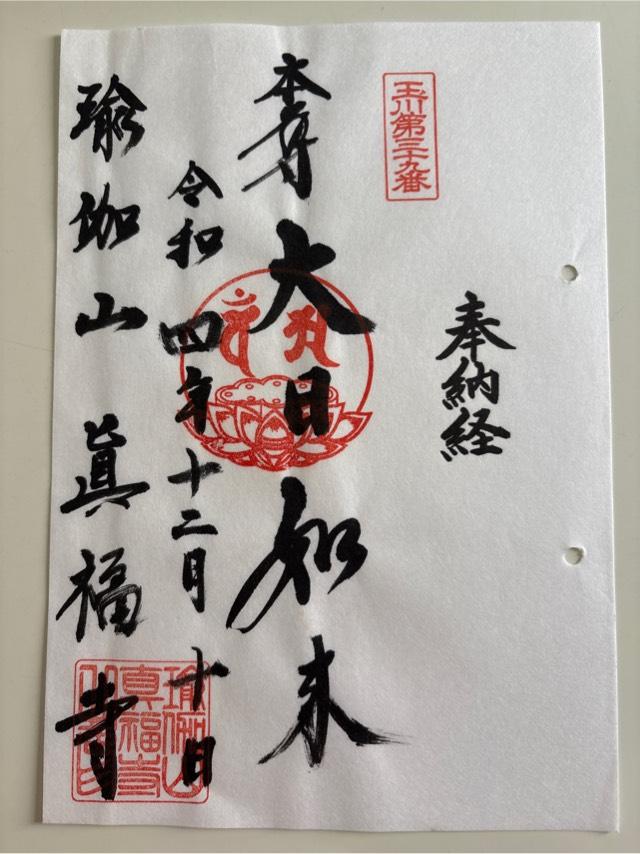 玉川第三十九番
奉納経
本尊 大日如来
令和四年十二月十日
瑜伽山 眞福寺
瑜伽山
真福寺